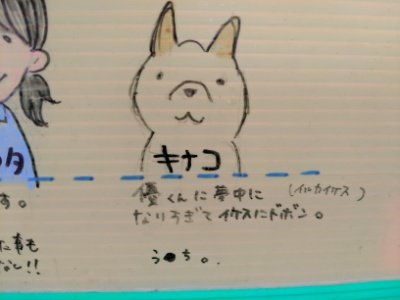 タ
キナコ
す。
た事も
なし!!
優くんに夢中に(イルカイケス)
なりすぎてイケスにドボン。
う●ち。